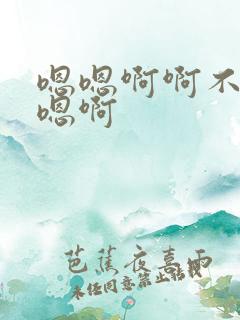 嗯嗯啊啊不
嗯啊
芭蕉夜喜雨
未经同意禁止转载